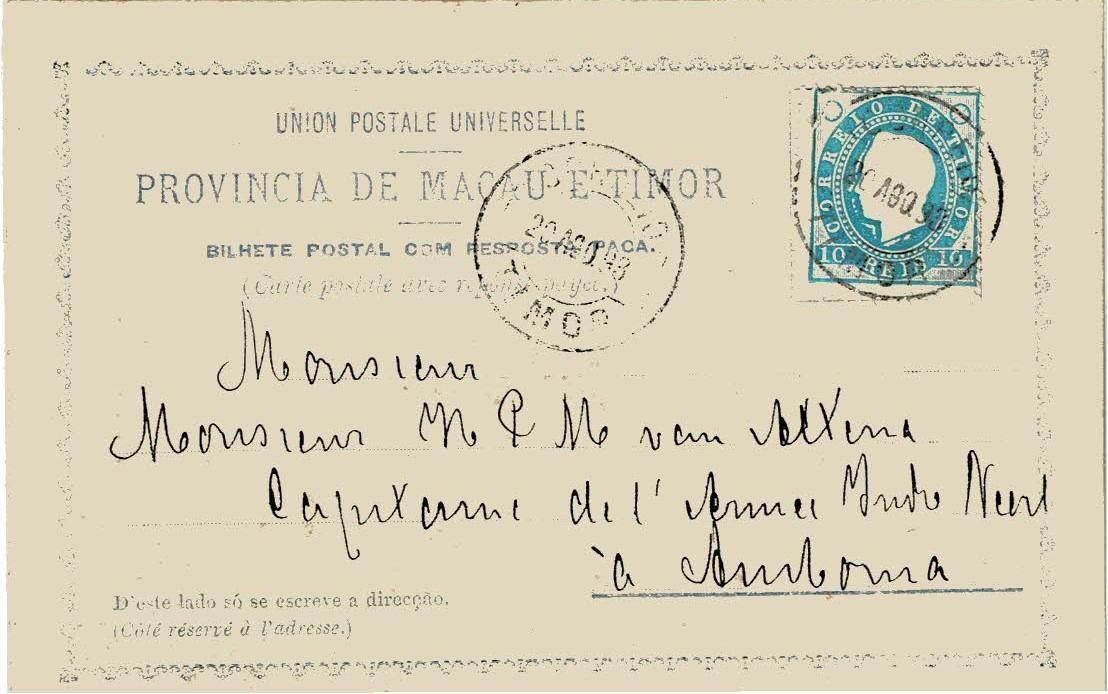 UNION POSTALE UNIVERSELLE
PROVINCIA DE MACAU E TIMOR
BILHETE POSTAL COM RESPOSTA PAGA.
(Carte postale avec réponse payée.)
CORREIO DE TIMOR
10 REIS 10
20 AGO. 93
TIMOR
CORREIO
20 AGO. 93
TIMOR
Monsieur
Monsieur H P M van Altena
Capitaine de l'Armee Indo Neerl
à Amboina
D'este lado só se escreve a direcção.
(Côté réservé à l'adresse.)